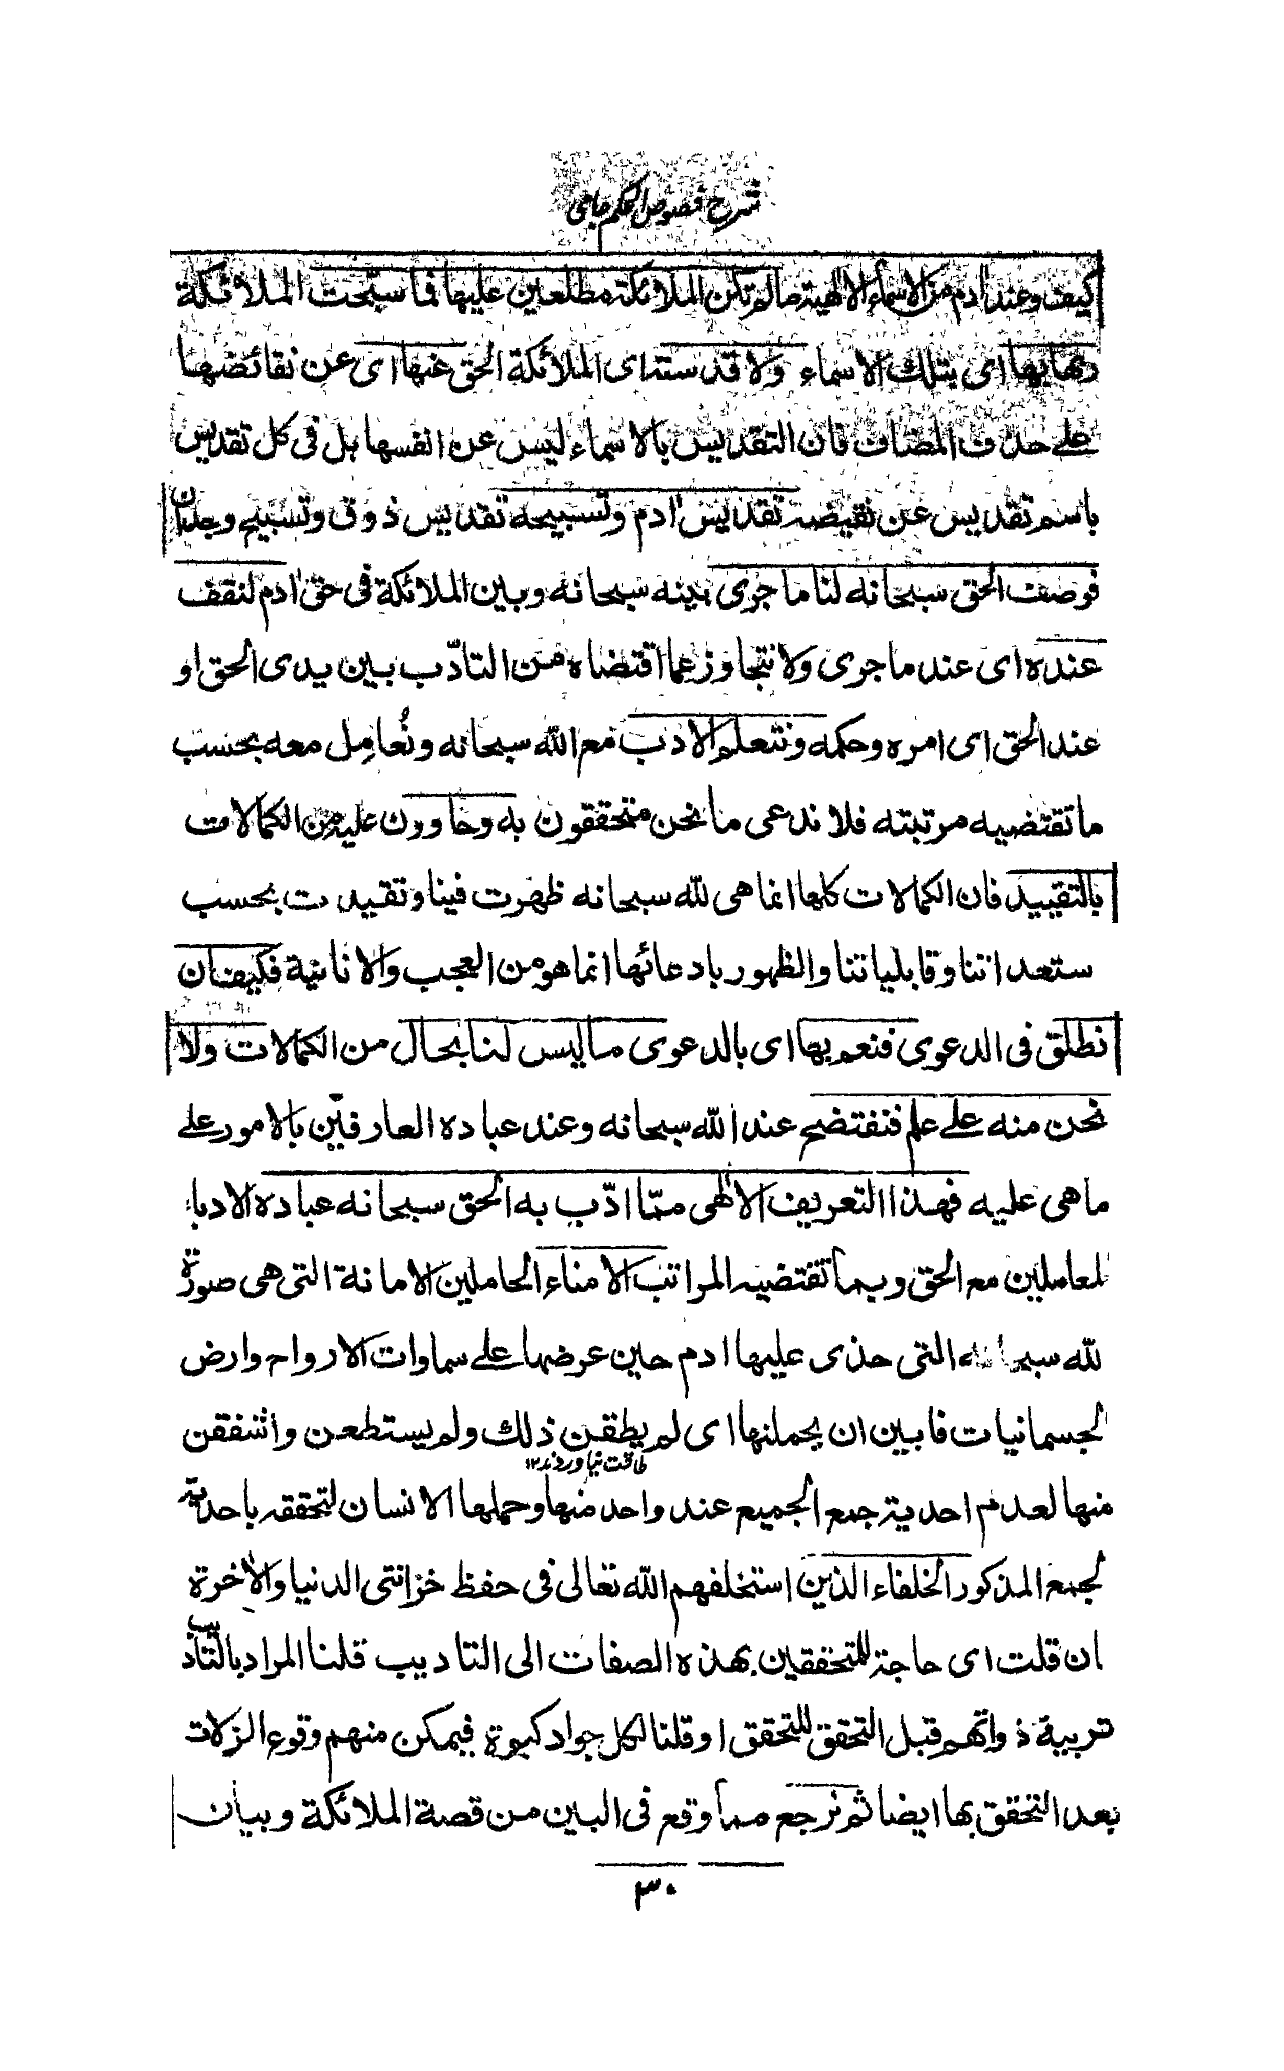 شرح فصوص الحكم جامى
كيف وعند ادم من الاسماء الالهية ما لم تكن الملائكة مطلعين عليها فما سبّحت الملائكة
ربها بها اى بتلك الاسماء ولا قدسته اى الملائكة الحق عنها اى عن نقائضها
على حذف المضاف فان التقديس بالاسماء ليس عن انفسها بل فى كل تقديس
باسم تقديس عن نقيضه تقديس ادم وتسبيحه تقديس ذوق وتسبيح وجدان
فوصف الحق سبحانه لنا ما جرى بينه سبحانه وبين الملائكة فى حق ادم لنقف
عنده اى عند ما جرى ولا نتجاوز عما اقتضاه من التأدّب بين يدى الحق او
عند الحق اى امره وحكمه ونتعلم الادب مع الله سبحانه ونُعامِل معه بحسب
ما تقتضيه مرتبته فلا ندعى ما نحن متحققون به وحاوون عليه من الكمالات
بالتقييد فان الكمالات كلها انما هى لله سبحانه ظهرت فينا وتقيدت بحسب
ستعداتنا وقابلياتنا والظهور بادعائها انما هو من العجب والانانية فكيف ان
نطلق فى الدعوى فنعم بها اى بالدعوى ما ليس لنا بحال من الكمالات ولا
نحن منه على علم فنفتضح عند الله سبحانه وعند عباده العارفين بالامور على
ما هى عليه فهذا التعريف الالهى ممّا ادّب به الحق سبحانه عباده الادباء
لمعاملين مع الحق وبما تقتضيه المراتب الامناء الحاملين الامانة التى هى صورة
لله سبحانه التى حذى عليها ادم حين عرضها على سماوات الارواح وارض
الجسمانيات فابين ان يحملنها اى لم يطقن ذلك ولم يستطعن واشفقن
طاقت نياوردند ١٢
منها لعدم احدية جمع الجميع عند واحد منها وحملها الانسان لتحققه باحدية
لجمع المذكور الخلفاء الذين استخلفهم الله تعالى فى حفظ خزانتى الدنيا والاخرة
ان قلت اى حاجة للمتحققين بهذه الصفات الى التاديب قلنا المراد بالتأديب
تربية ذواتهم قبل التحقق للتحقق او قلنا لكل جواد كبوة فيمكن منهم وقوع الزلات
بعد التحقق بها ايضا ثم نرجع مما وقع فى البين من قصة الملائكة وبيان
٣٠